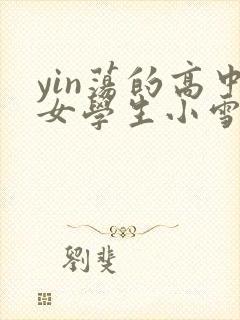 yin蕩的高中
女學生小雪
劉斐